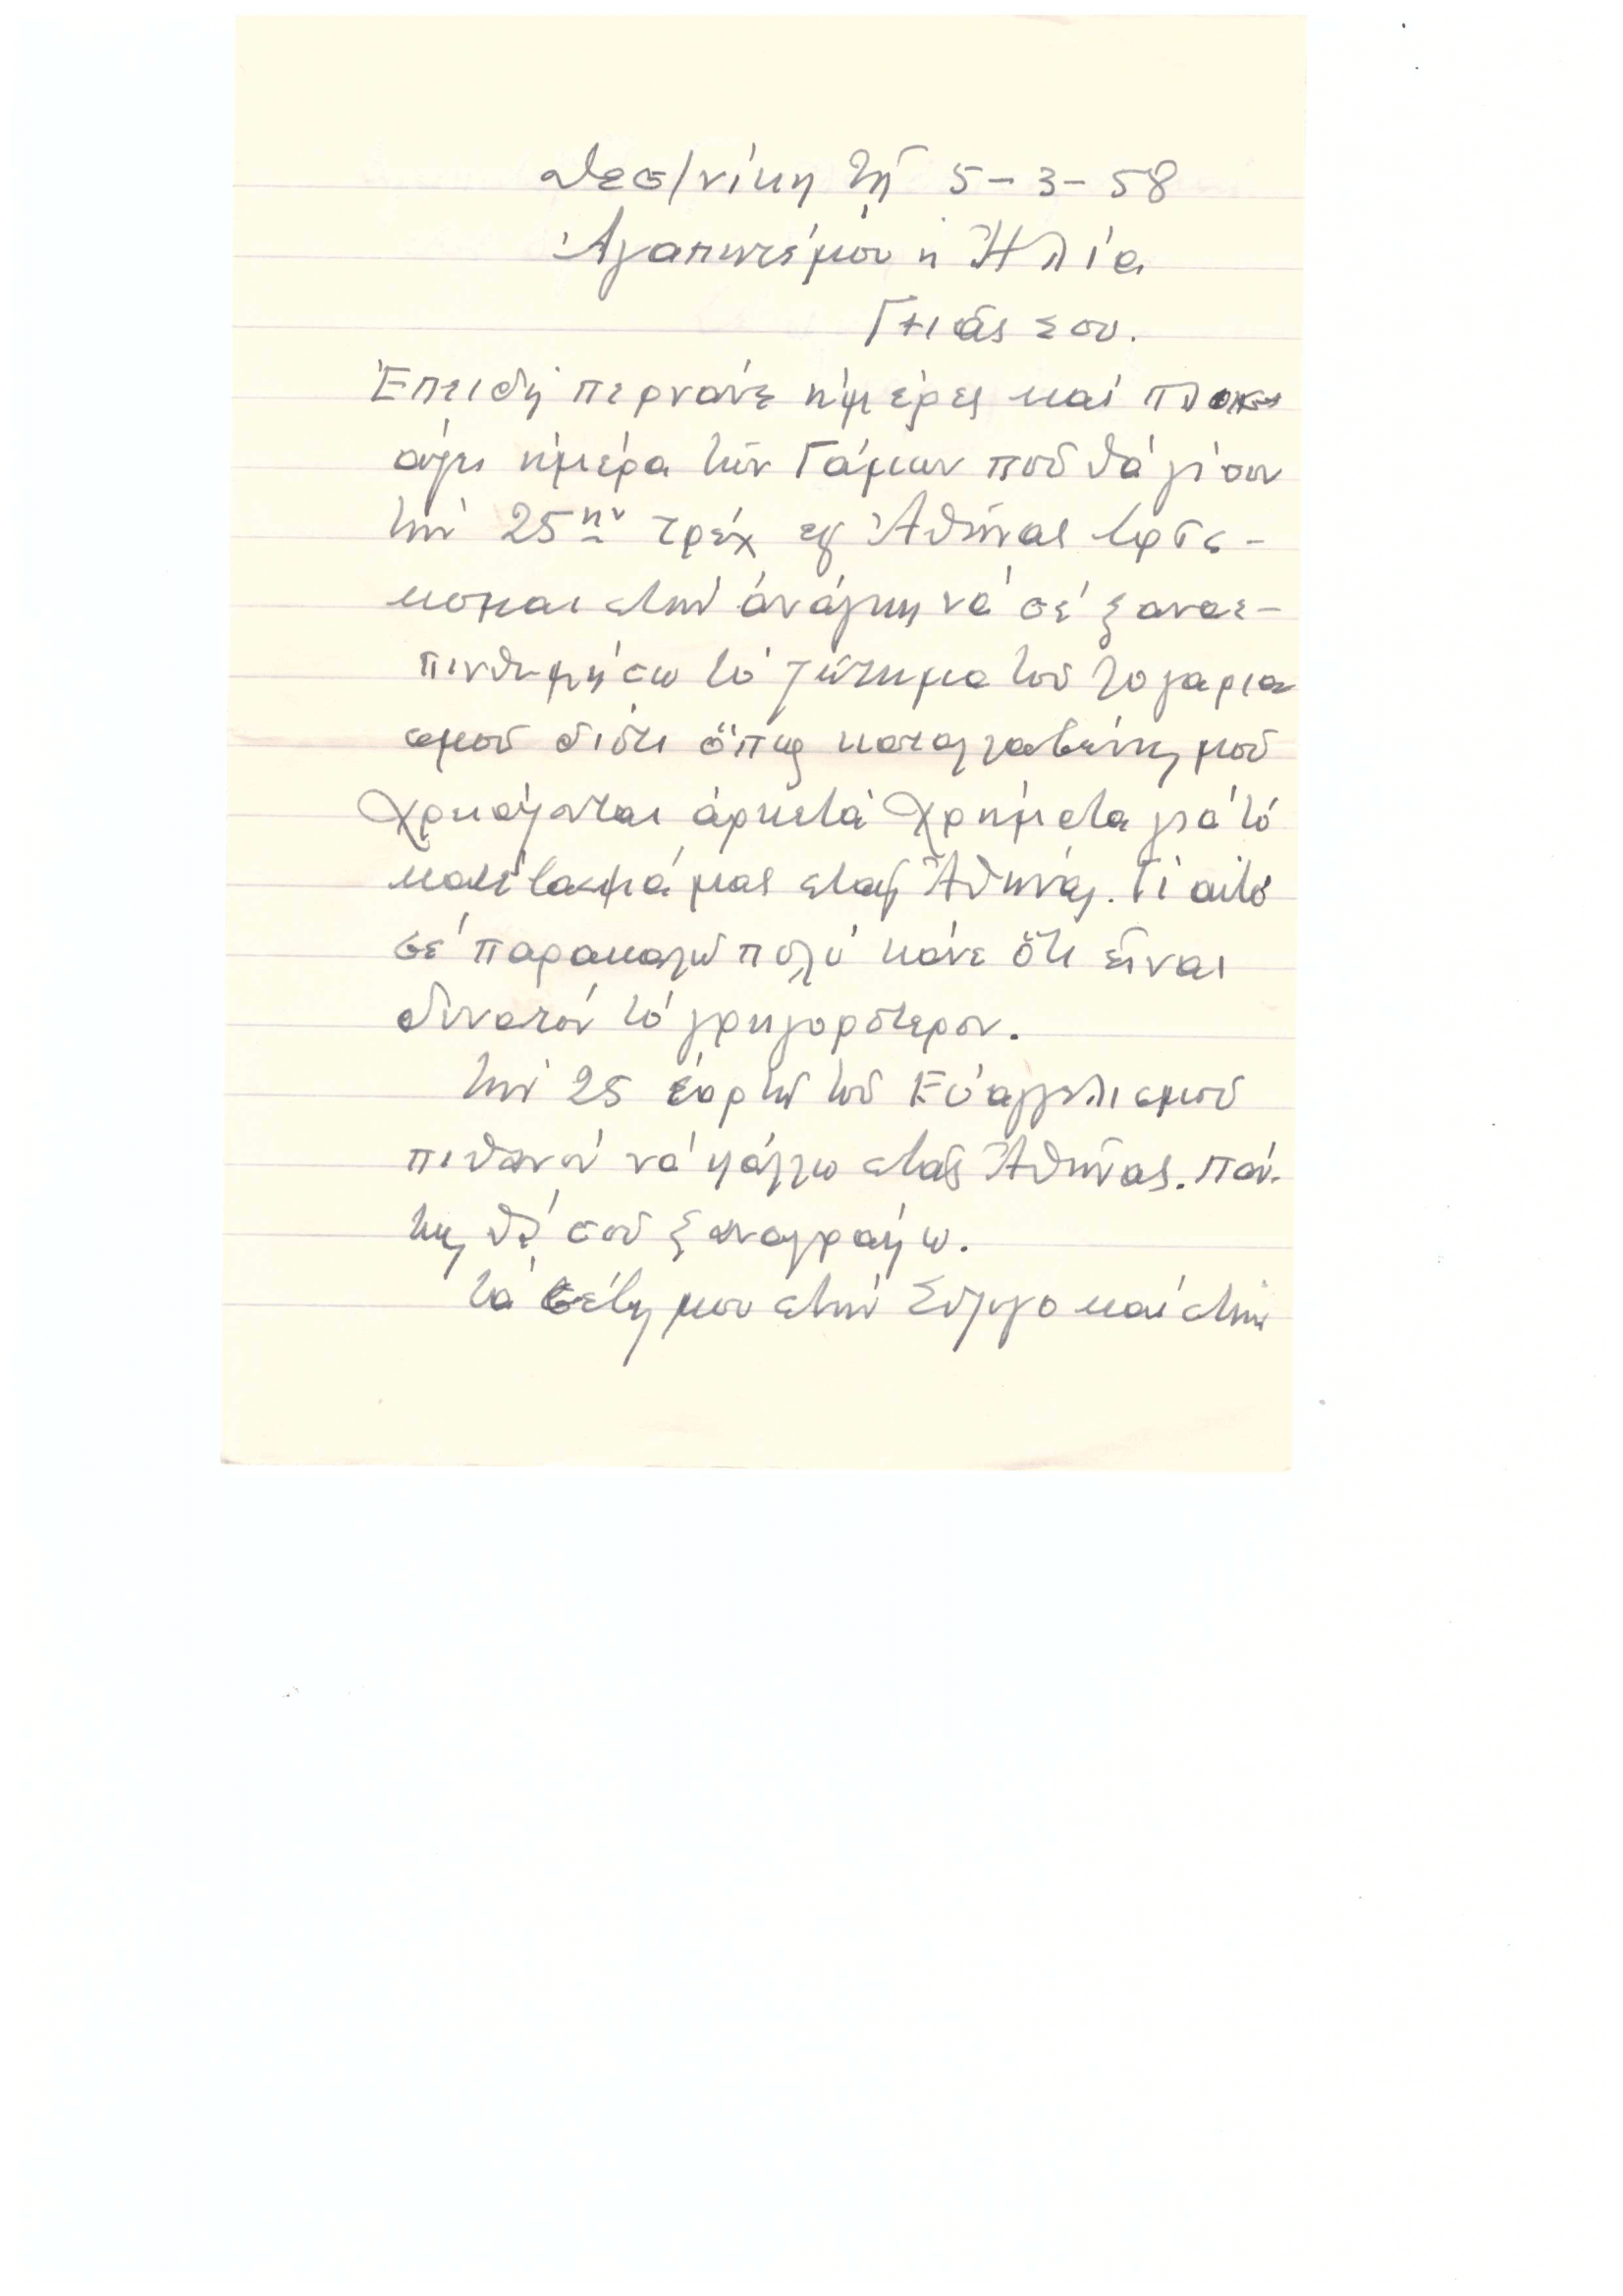 Θεσ/νίκη τῇ 5-3-58
Ἀγαπητέ μου Ἠλία
Γειάς σου.
Ἐπειδή περνᾶνε ἡμέρες καί
ἡμέρα τῶν Γάμων πού θά γίνουν
τήν 25ην τρέχ εἰς Ἀθήνας
κομαι στήν ἀνάγκη νά σέ ξαναε-
πενθυμήσω τό ζήτημα τοῦ λογαρια
σμοῦ διότι ὅπως καταλαβαίνης μοῦ
χρειάζονται ἀρκετά χρήματα γιά τό
κατέβασμά μας στάς Ἀθήνας. Γι αὐτό
σέ παρακαλῶ πολύ κάνε ὅτι εἶναι
δυνατόν τό γρηγορότερον.
τήν 25 ἑορτή τοῦ Εὐαγγελισμοῦ
πιθανόν νά ψάλλω στάς Ἀθήνας. πάν-
τως θά σοῦ ξαναγράψω.
τά σέβη μου στήν Σύζυγο καί στήν